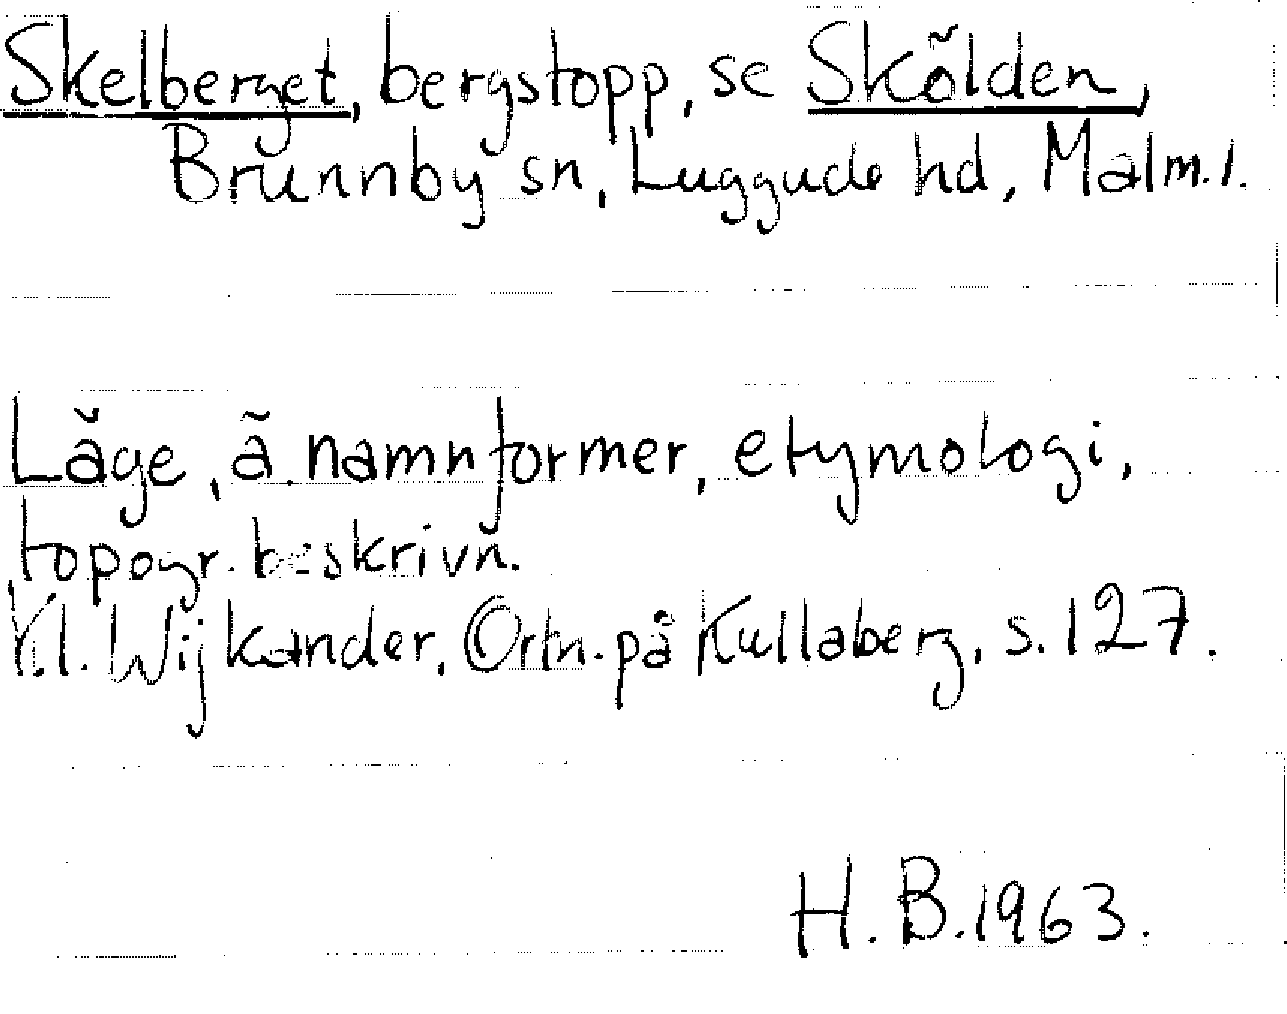 Skelberget, bergstopp, se Skölden,
Brunnby sn, Luggude hd, Malm. l.
Läge, ä. namnformer, etymologi,
topogr. beskrivn.
Kl. Wijkander, Ortn. på Kullaberg, s. 127.
H. B. 1963.